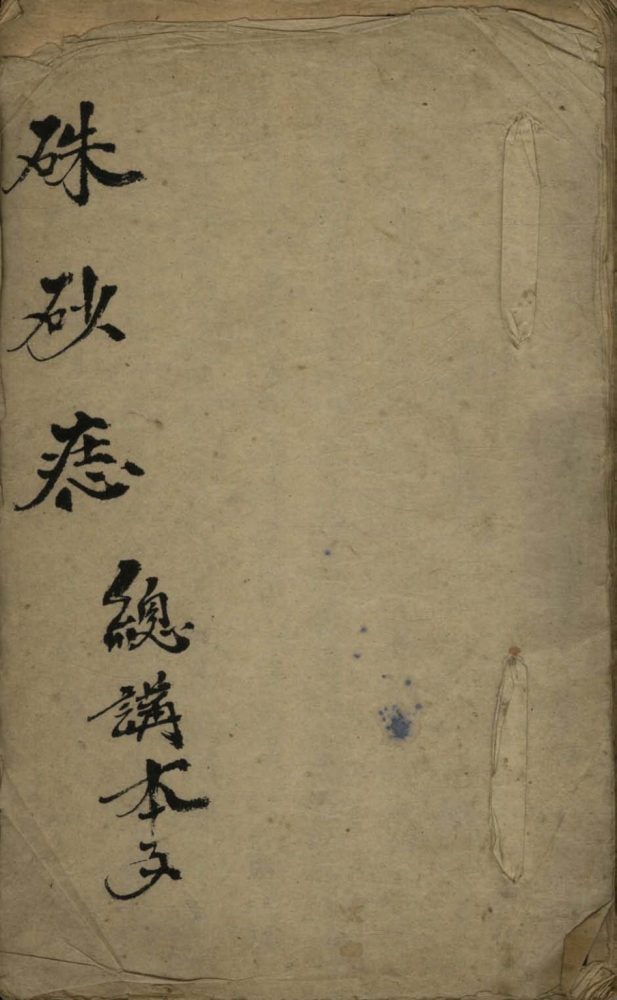 硃砂痣
總講本子